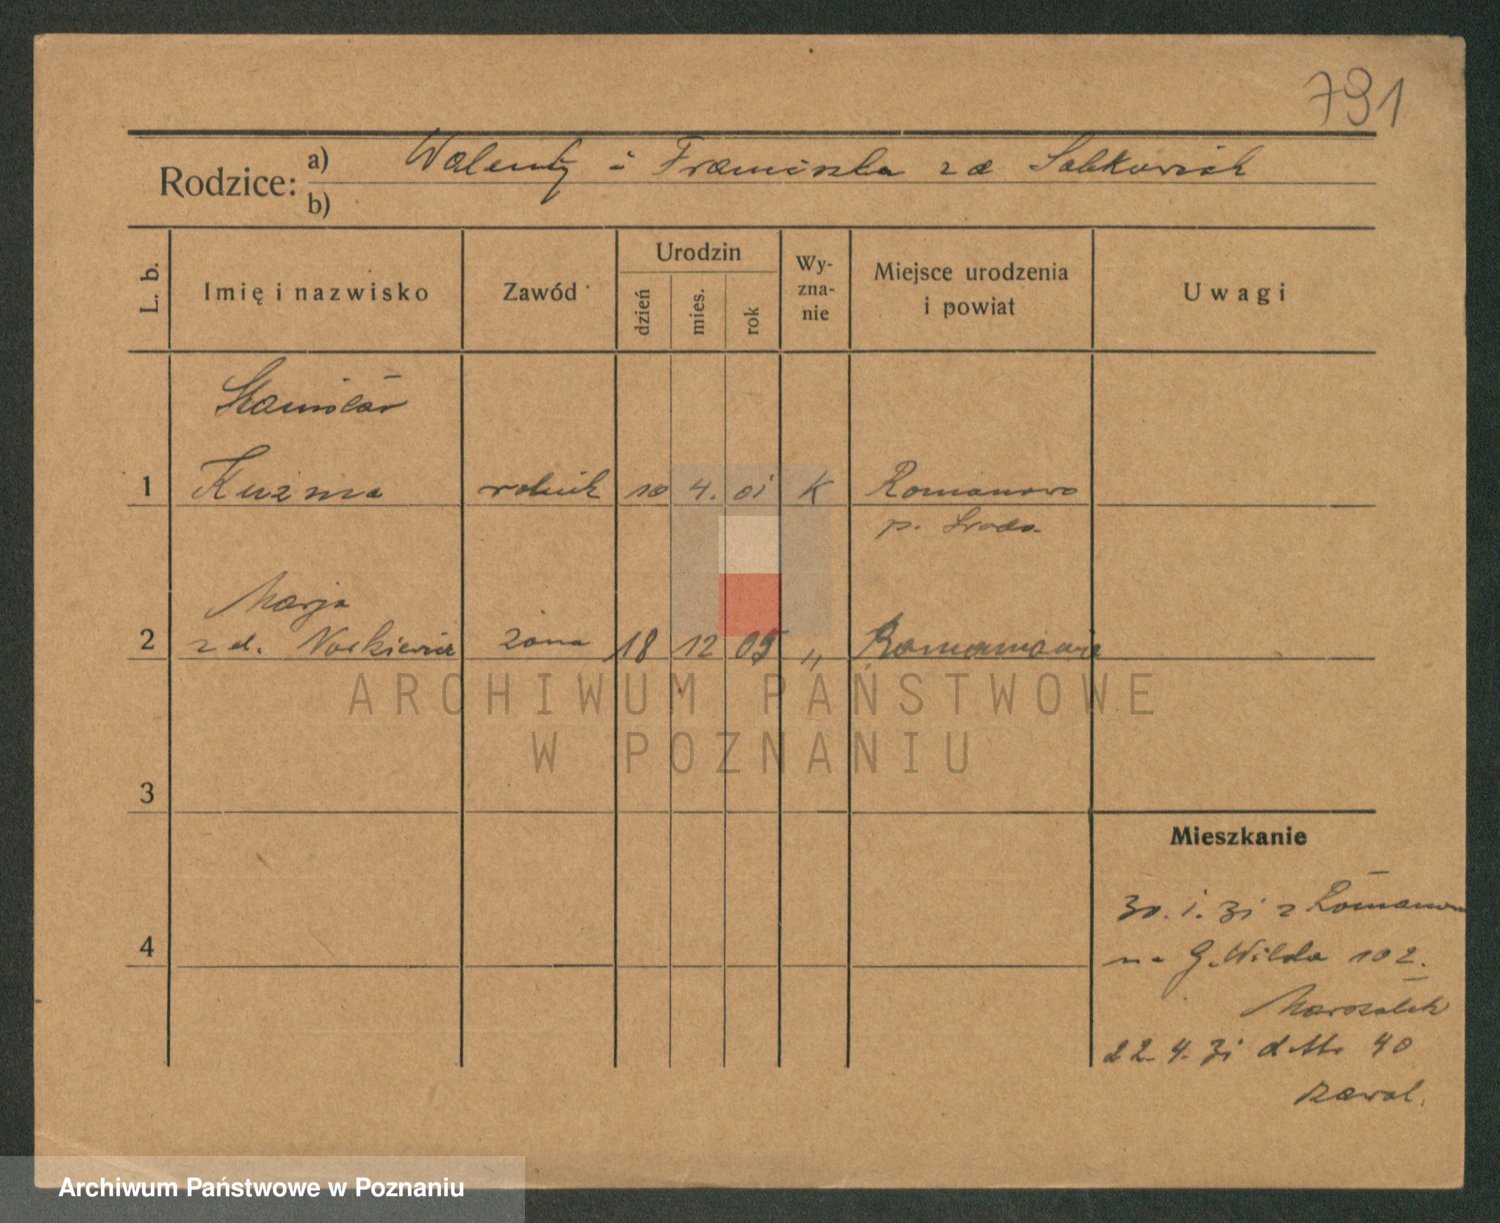 791
Rodzice: a) Walenty i Franciszka z d. Sobkowiak
b)
L. b.
Imię i nazwisko
Zawód
Urodzin
dzień
mies.
rok
Wy-
zna-
nie
Miejsce urodzenia
i powiat
Uwagi
Stanisław
1 Kuźma rolnik 10 4. 01 K Romanowo
p. Środa
Marja
2 z d. żona 18 12 05 "
3
Mieszkanie
30. 1. 31 z Romanowa
4
na G. Wilda 102.
Marszałek
22. 4. 31 dtto 40
ARCHIWUM PAŃSTWOWE
W POZNANIU
Archiwum Państwowe w Poznaniu